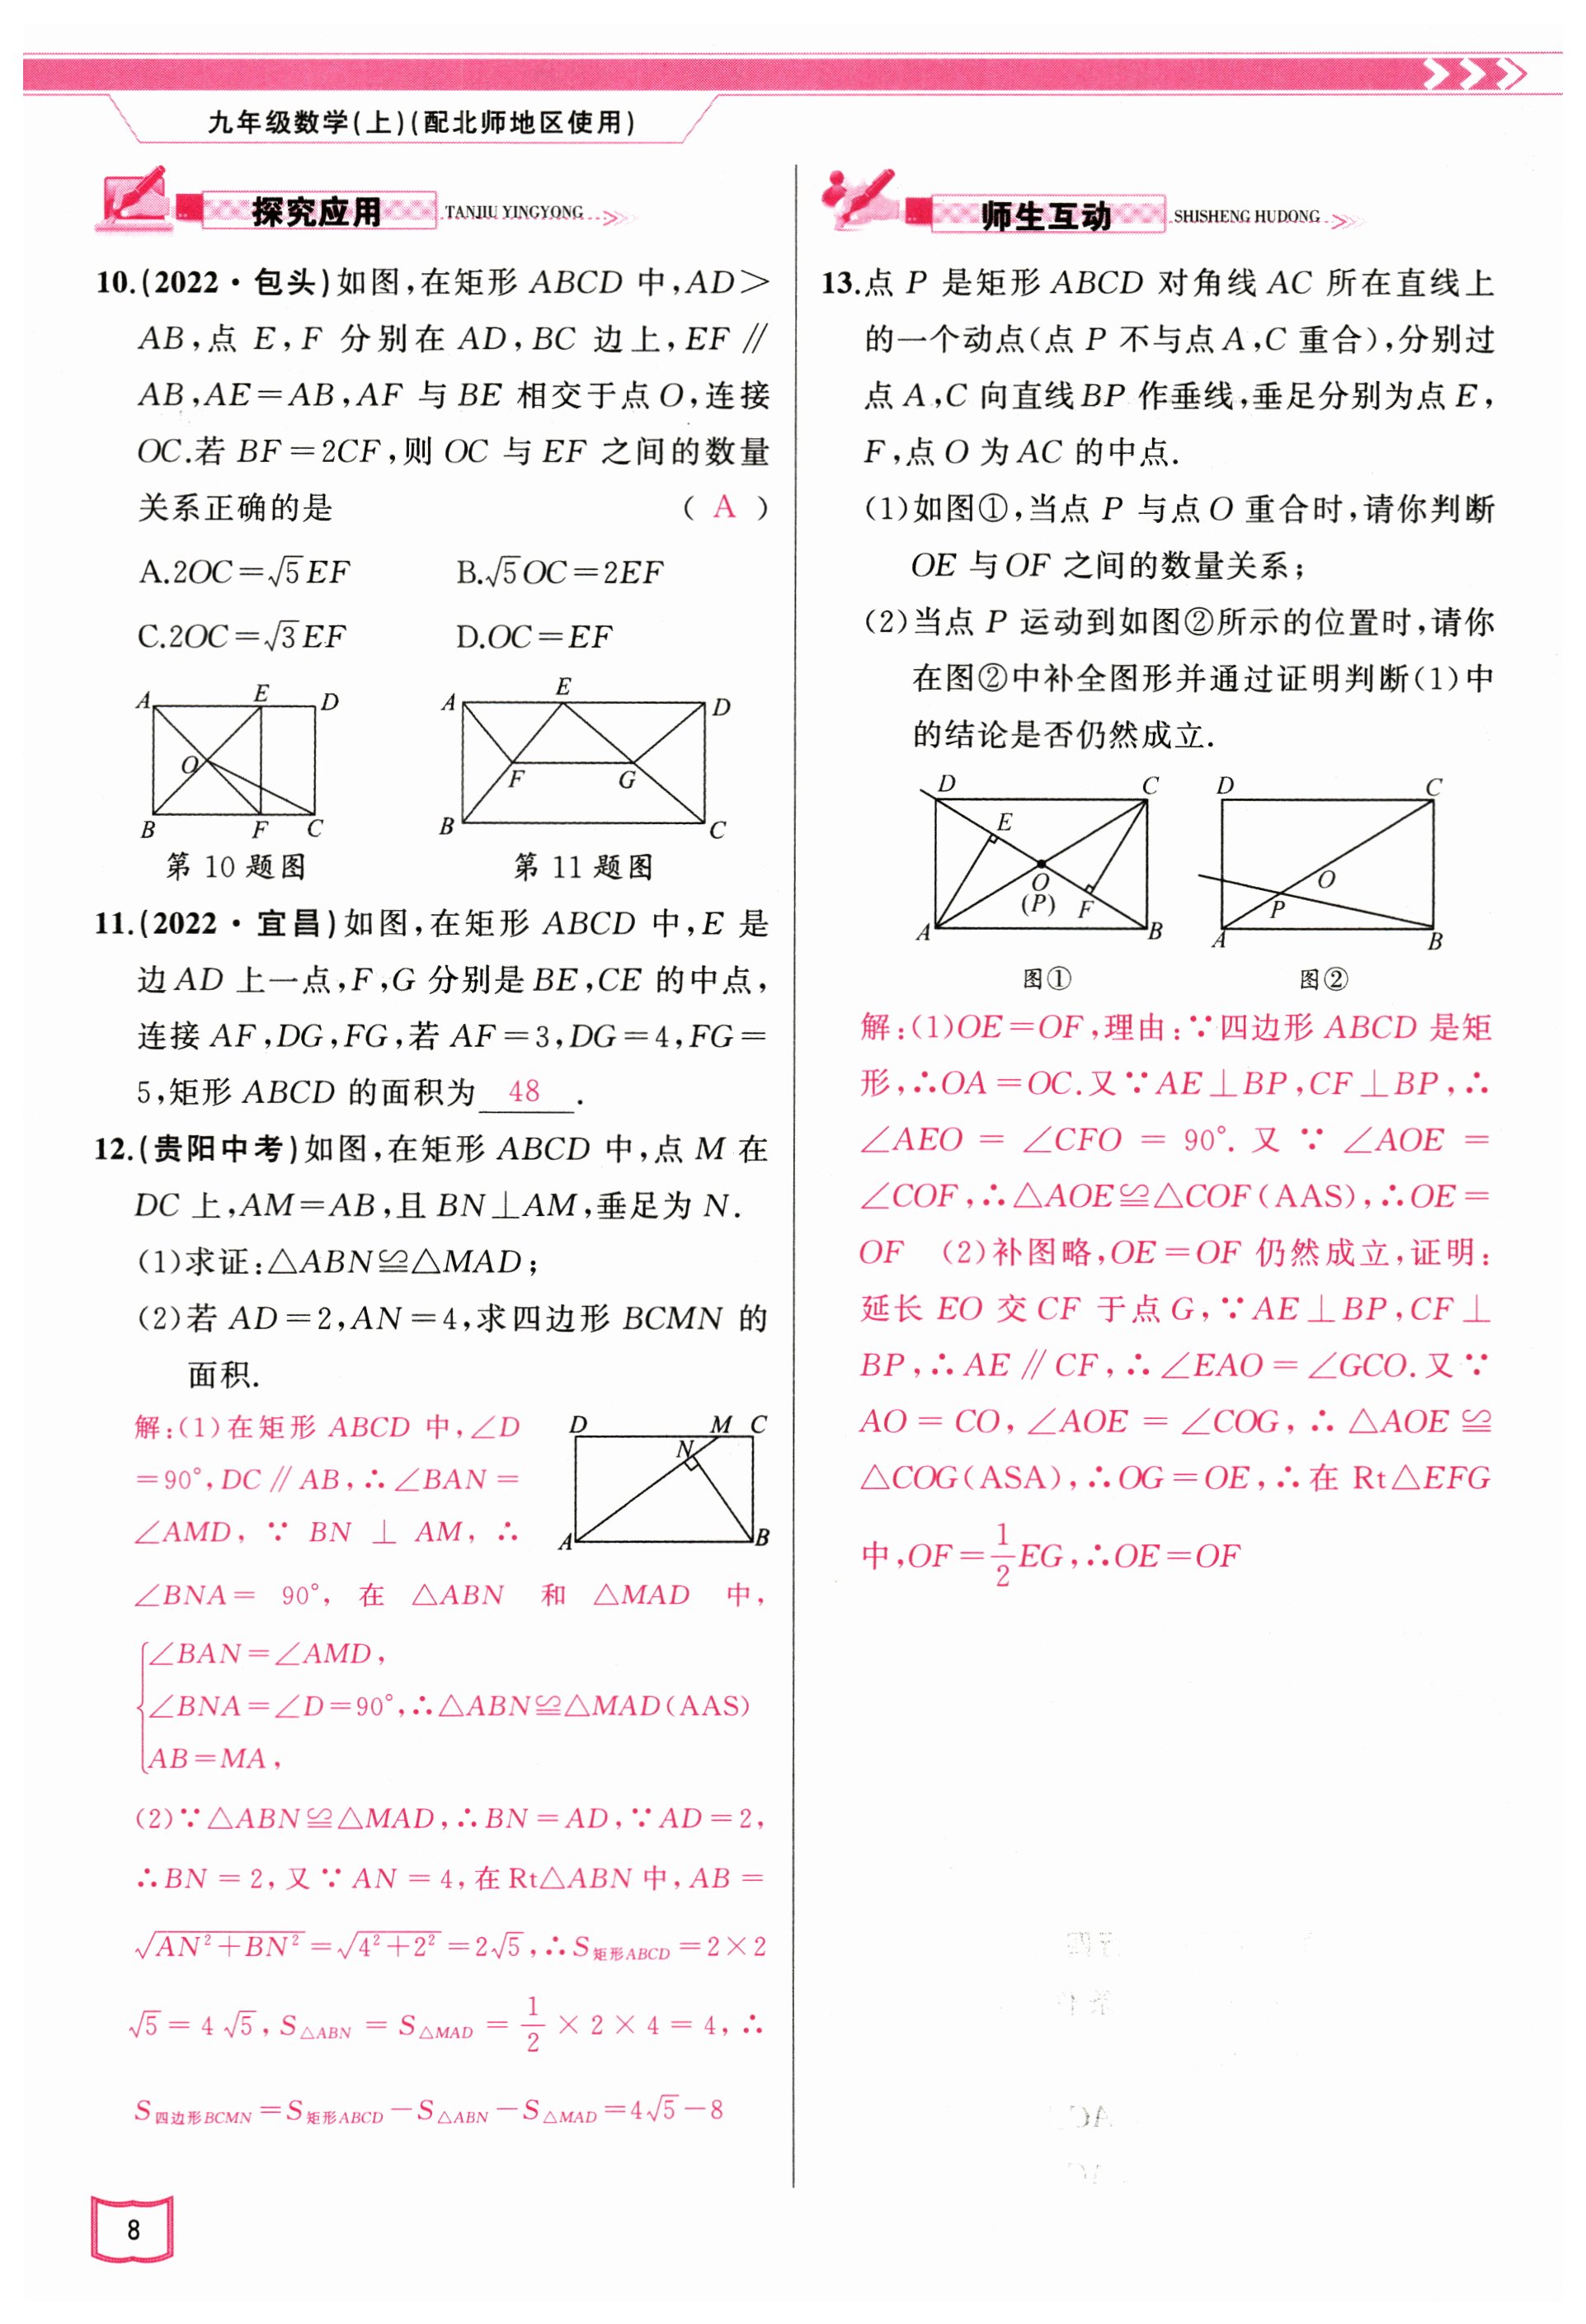 九年级数学(上)(配北师地区使用)
探究应用 TANJIU YINGYONG
10.(2022·包头)如图,在矩形 ABCD 中,AD＞
AB,点 E,F 分别在 AD,BC 边上,EF∥
AB,AE=AB,AF 与 BE 相交于点 O,连接
OC.若 BF=2CF,则 OC 与 EF 之间的数量
关系正确的是 ( A )
A.2OC=√5EF B.√5OC=2EF
C.2OC=√3EF D.OC=EF
A E D
O
B F C
第 10 题图
A E D
F G
B C
第 11 题图
11.(2022·宜昌)如图,在矩形 ABCD 中,E 是
边 AD 上一点,F,G 分别是 BE,CE 的中点,
连接 AF,DG,FG,若 AF=3,DG=4,FG=
5,矩形 ABCD 的面积为 48 .
12.(贵阳中考)如图,在矩形 ABCD 中,点 M 在
DC 上,AM=AB,且 BN⊥AM,垂足为 N.
(1)求证:△ABN≌△MAD;
(2)若 AD=2,AN=4,求四边形 BCMN 的
面积.
解:(1)在矩形 ABCD 中,∠D
=90°,DC∥AB,∴∠BAN=
∠AMD,∵BN⊥AM,∴
D M C
N
A B
∠BNA=90°,在△ABN 和△MAD 中,
∠BAN=∠AMD,
∠BNA=∠D=90°,∴△ABN≌△MAD(AAS)
AB=MA,
(2)∵△ABN≌△MAD,∴BN=AD,∵AD=2,
∴BN=2,又∵AN=4,在Rt△ABN中,AB=
√(AN²+BN²)=√(4²+2²)=2√5,∴S矩形ABCD=2×2
√5=4√5,S△ABN=S△MAD=1/2×2×4=4,∴
S四边形BCMN=S矩形ABCD−S△ABN−S△MAD=4√5−8
8
师生互动 SHISHENG HUDONG
13.点 P 是矩形 ABCD 对角线 AC 所在直线上
的一个动点(点 P 不与点 A,C 重合),分别过
点 A,C 向直线 BP 作垂线,垂足分别为点 E,
F,点 O 为 AC 的中点.
(1)如图①,当点 P 与点 O 重合时,请你判断
OE 与 OF 之间的数量关系;
(2)当点 P 运动到如图②所示的位置时,请你
在图②中补全图形并通过证明判断(1)中
的结论是否仍然成立.
D C
E
O
(P) F
A B
图①
D C
O
P
A B
图②
解:(1)OE=OF,理由:∵四边形 ABCD 是矩
形,∴OA=OC.又∵AE⊥BP,CF⊥BP,∴
∠AEO=∠CFO=90°.又∵∠AOE=
∠COF,∴△AOE≌△COF(AAS),∴OE=
OF (2)补图略,OE=OF 仍然成立,证明:
延长 EO 交 CF 于点 G,∵AE⊥BP,CF⊥
BP,∴AE∥CF,∴∠EAO=∠GCO.又∵
AO=CO,∠AOE=∠COG,∴△AOE≌
△COG(ASA),∴OG=OE,∴在 Rt△EFG
中,OF=1/2EG,∴OE=OF